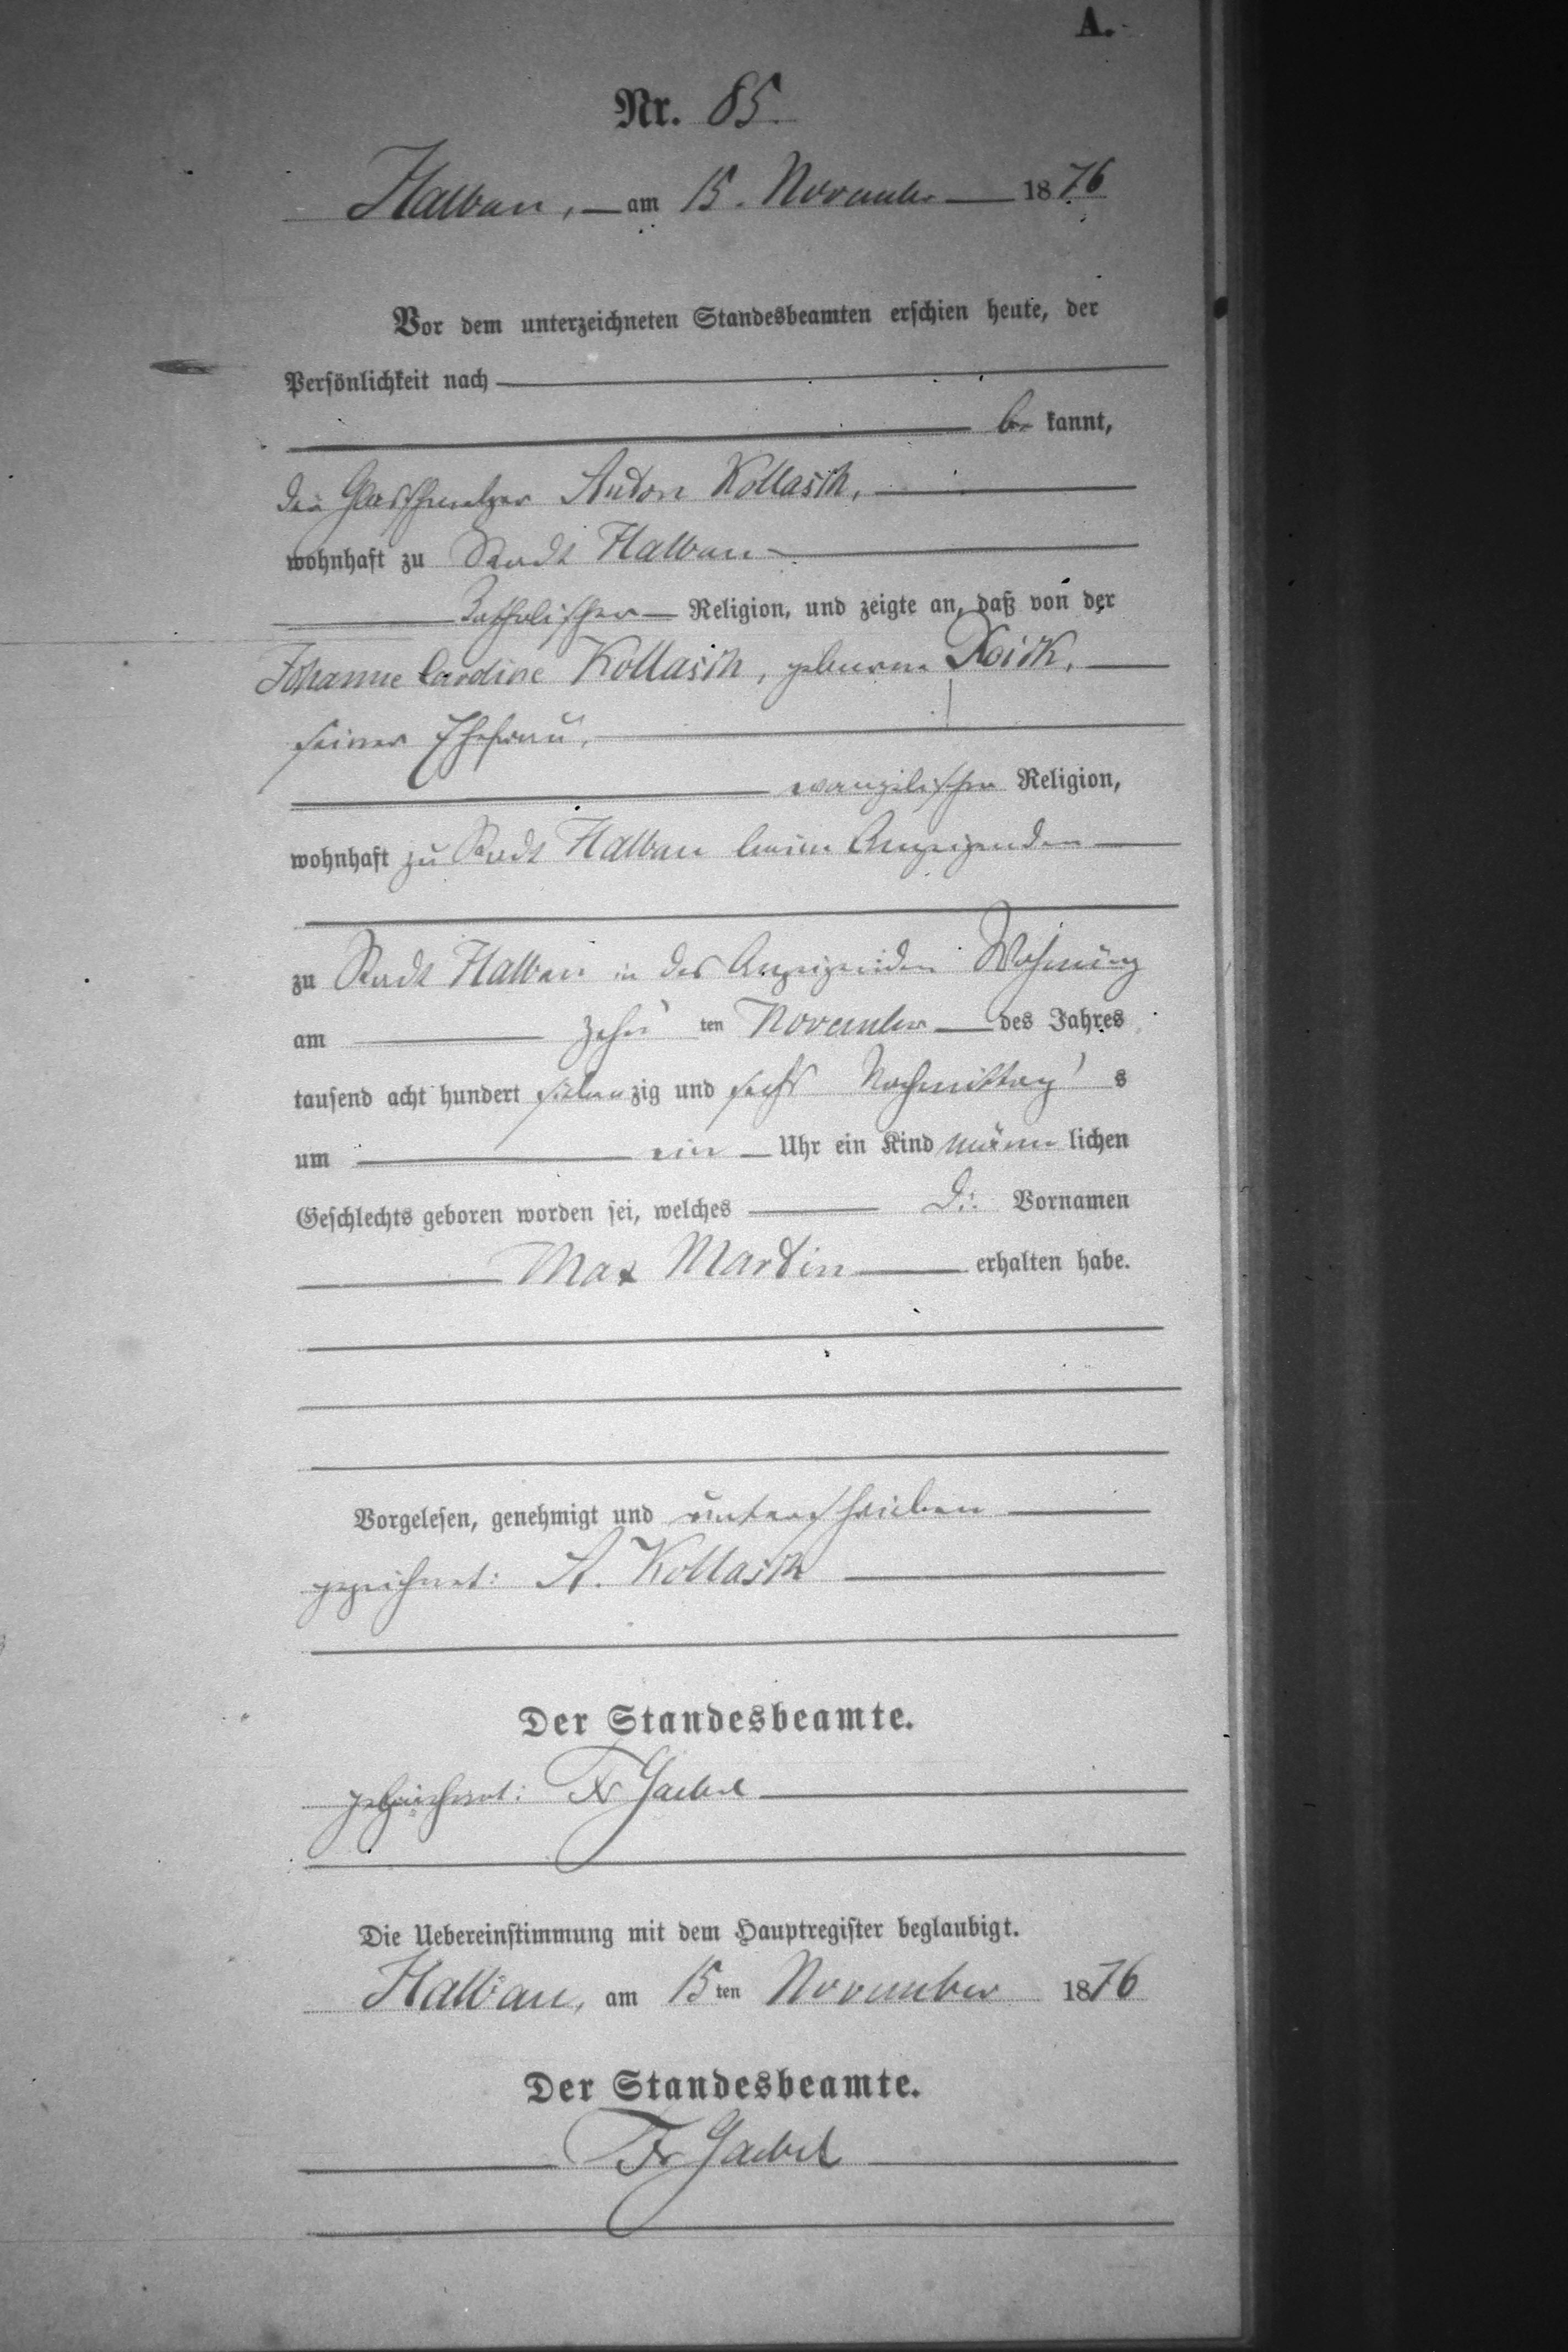 A.
Nr. 85.
Halbau, am 15. November 1876
Vor dem unterzeichneten Standesbeamten erschien heute, der
Persönlichkeit nach
be kannt,
der Glasschmelzer Anton Kollasch,
wohnhaft zu Stadt Halbau
katholischer Religion, und zeigte an, daß von der
Johanne Caroline Kollasch, geborene
seiner Ehefrau,
evangelischer Religion,
wohnhaft zu Stadt Halbau beim Anzeigenden
zu Stadt Halbau in des Anzeigenden Wohnung
am zehn ten November des Jahres
tausend acht hundert sieben zig und sechs Nachmittag s
um ein Uhr ein Kind männ lichen
Geschlechts geboren worden sei, welches die Vornamen
Max Martin erhalten habe.
Vorgelesen, genehmigt und unterschrieben
gezeichnet: A. Kollasch
Der Standesbeamte.
gezeichnet: Fr Gaebel
Die Uebereinstimmung mit dem Hauptregister beglaubigt.
Halbau, am 15 ten November 1876
Der Standesbeamte.
Fr Gaebel